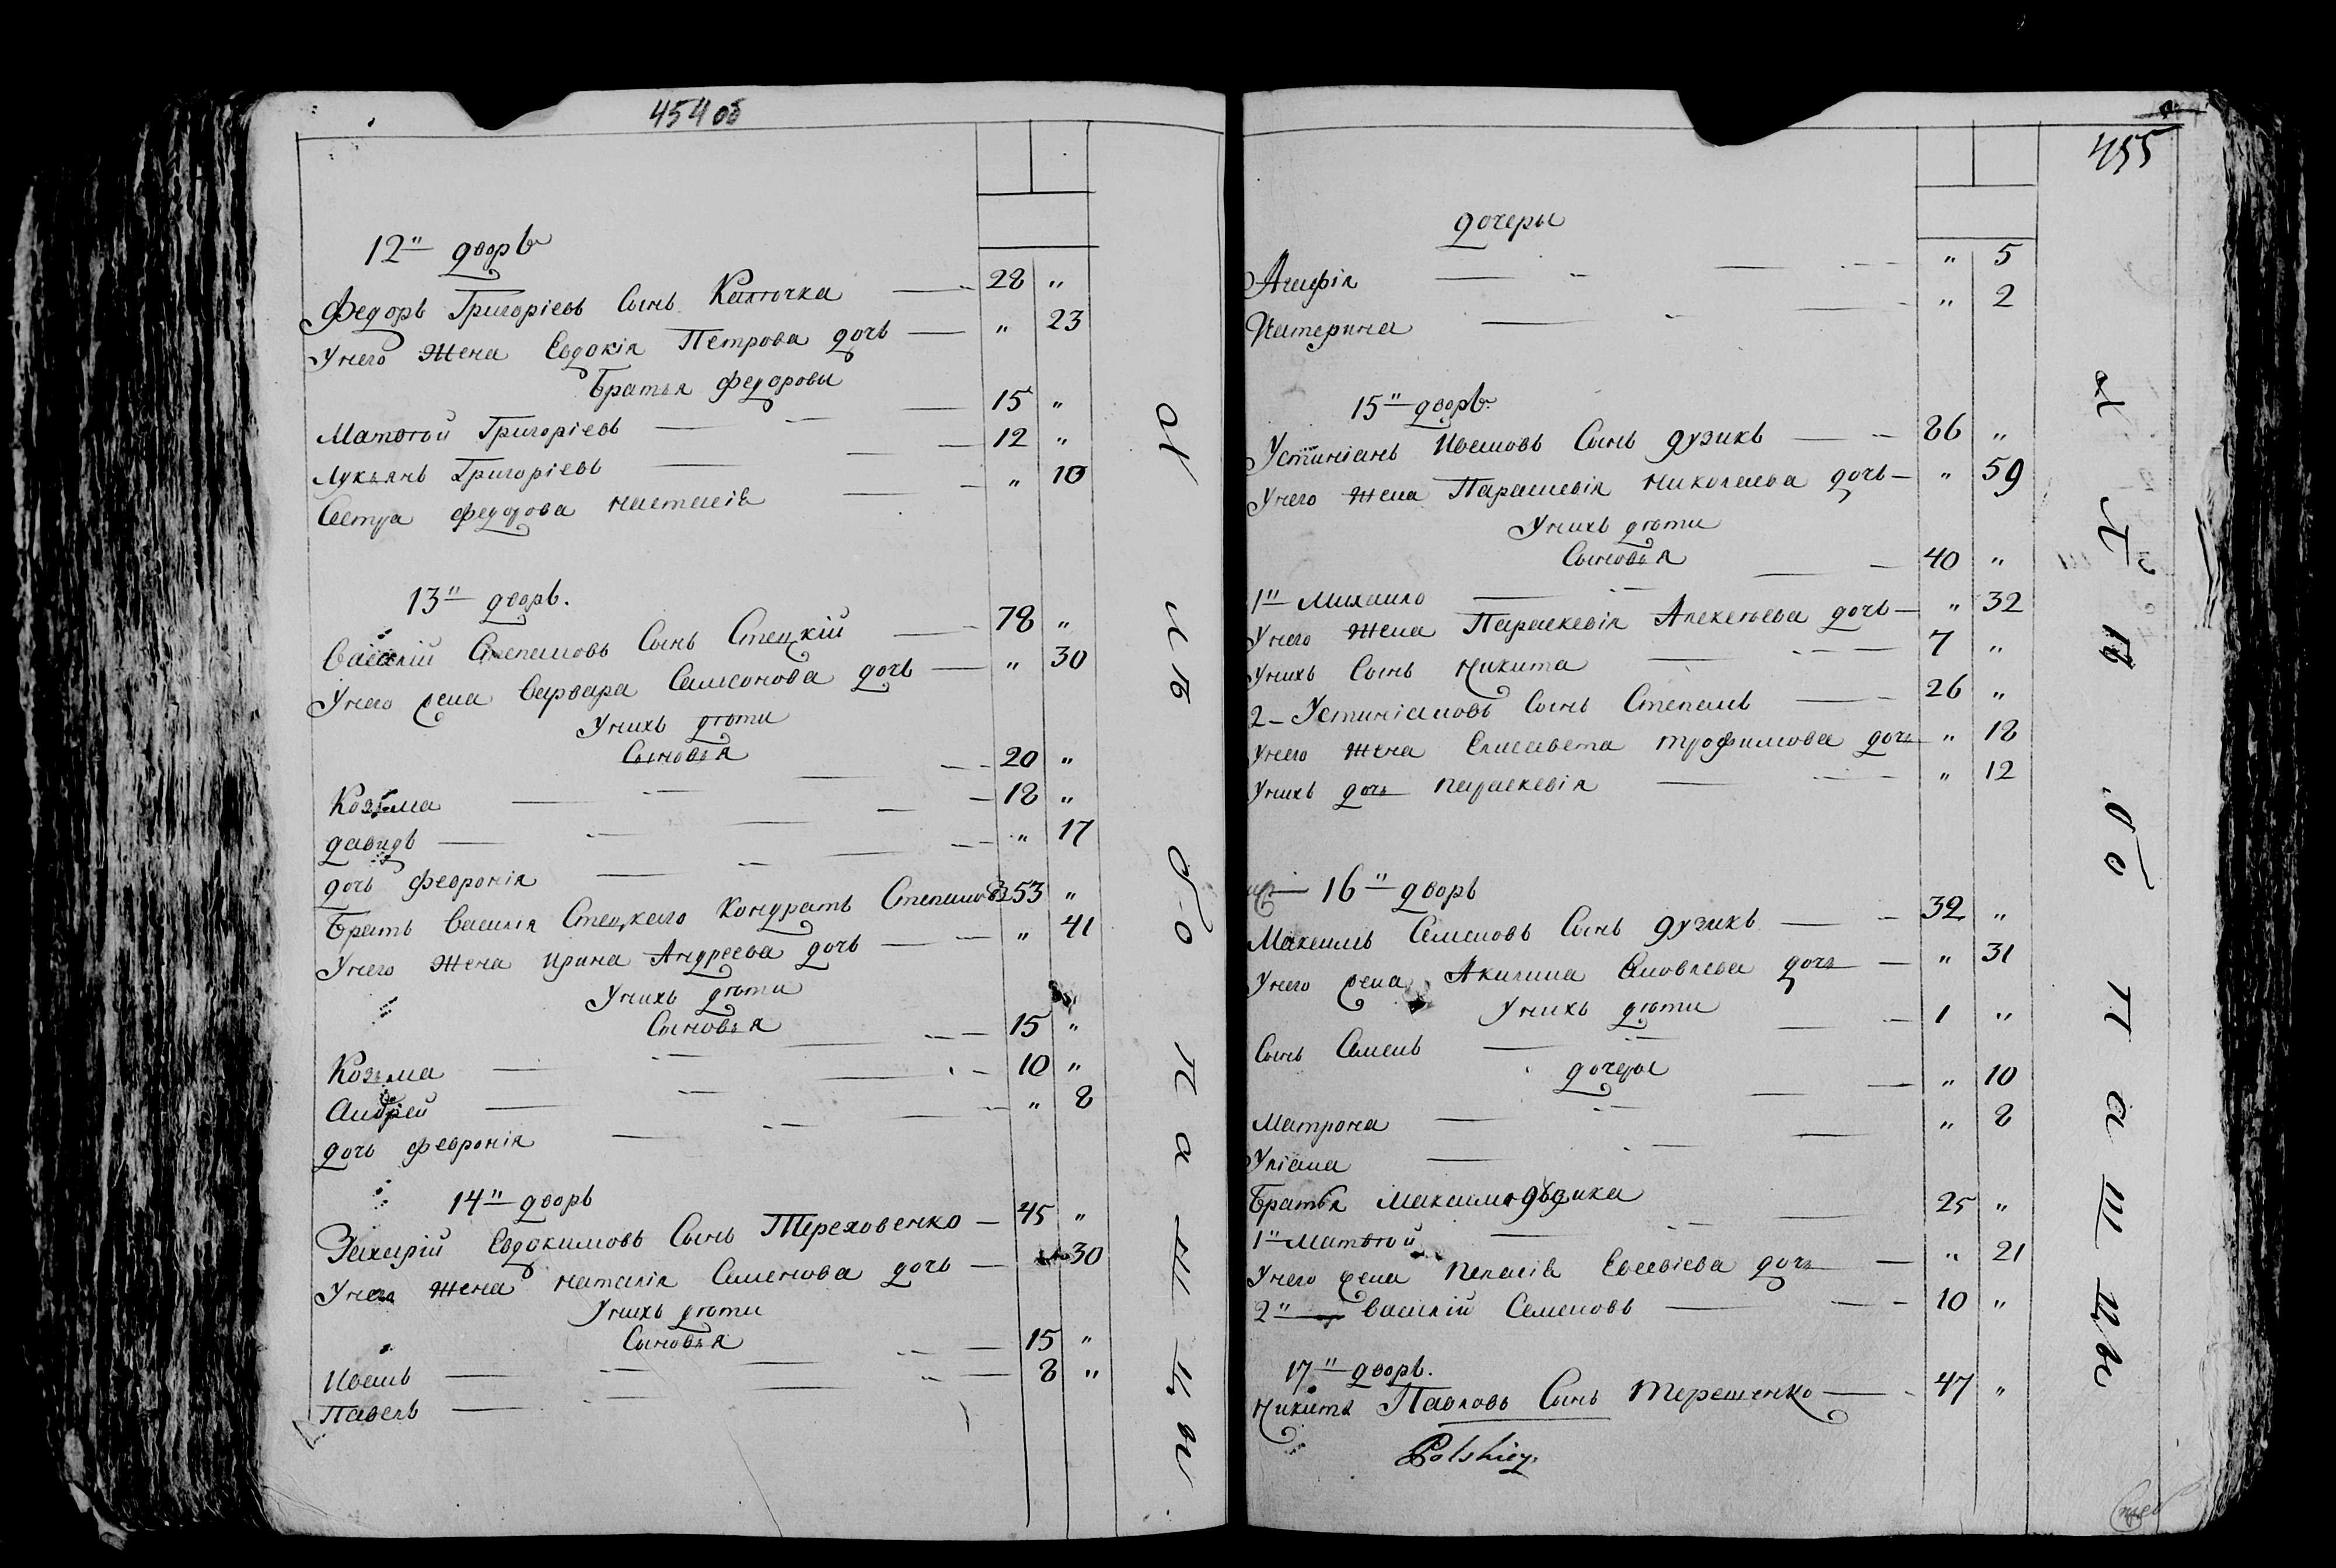 454 об
12" дворъ
Федоръ Григоріевъ Сынъ Калючка 28 "
Унего Жена Евдокія Петрова дочь " 23
Братья Федоровы
Матвѣй Григоріевъ 15 "
Лукьянъ Григоріевъ 12 "
Сестра Федорова Настасія " 10
13" дворъ.
Василій Степановъ Сынъ Стецкій 78 "
Унего жена Варвара Самсонова дочь " 30
Унихъ дѣти
Сыновья
Козьма 20 "
Давидъ 18 "
дочь Февронія " 17
Братъ Василія Стецкаго Кондратъ Степановъ 53 "
Унего Жена Ирина Андреева дочь " 41
Унихъ дѣти
Сыновья
Козьма 15 "
Андрей 10 "
дочь Февронія " 8
14" дворъ
Захарій Евдокимовъ Сынъ Тереховенко 45 "
Унего Жена Наталія Семенова дочь 30
Унихъ дѣти
Сыновья
Иванъ 15 "
Павелъ 8 "
455
дочеры
Агафія " 5
Катерина " 2
15" дворъ.
Устиніанъ Ивановъ Сынъ Дузикъ 86 "
Унего Жена Параскевія Николаева дочь " 59
Унихъ дѣти
Сыновья
1" Михайло 40 "
Унего Жена Параскевія Алексѣева дочь " 32
Унихъ Сынъ Никита 7 "
2 Устиніановъ Сынъ Степанъ 26 "
Унего Жена Елисавета Трофимова дочь " 18
Унихъ дочь Параскевія " 12
16" дворъ
Максимъ Семеновъ Сынъ Дузикъ 32 "
Унего жена Акилина Яковлева дочь " 31
Унихъ дѣти
Сынъ Семенъ 1 "
дочеры
Матрона " 10
Уліана " 8
Братья Максима Дузика
1" Матвѣй 25 "
Унего жена Пелагія Евсевіева дочь " 21
2" Василій Семеновъ 10 "
17" дворъ.
Никита Павловъ Сынъ Терещенко 47 "